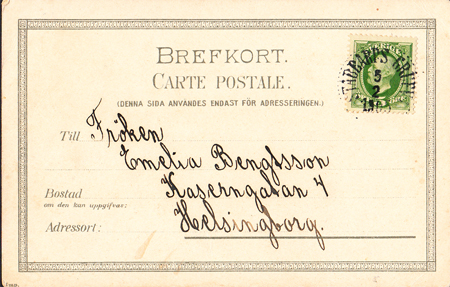 BREFKORT.
CARTE POSTALE.
(DENNA SIDA ANVÄNDES ENDAST FÖR ADRESSERINGEN.)
Till Fröken
Emelia Bengtsson
Bostad Kaserngatan 4
om den kan uppgifvas:
Adressort: Helsingborg.
5
2